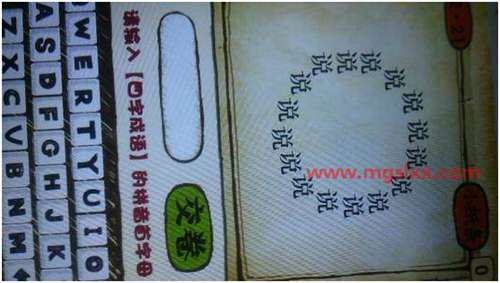 说说说说说说说说说说说说说说说说
交卷
请输入【四字成语】的拼音首字母
W E R T Y U I O
A S D F G H J K
Z X C V B N M